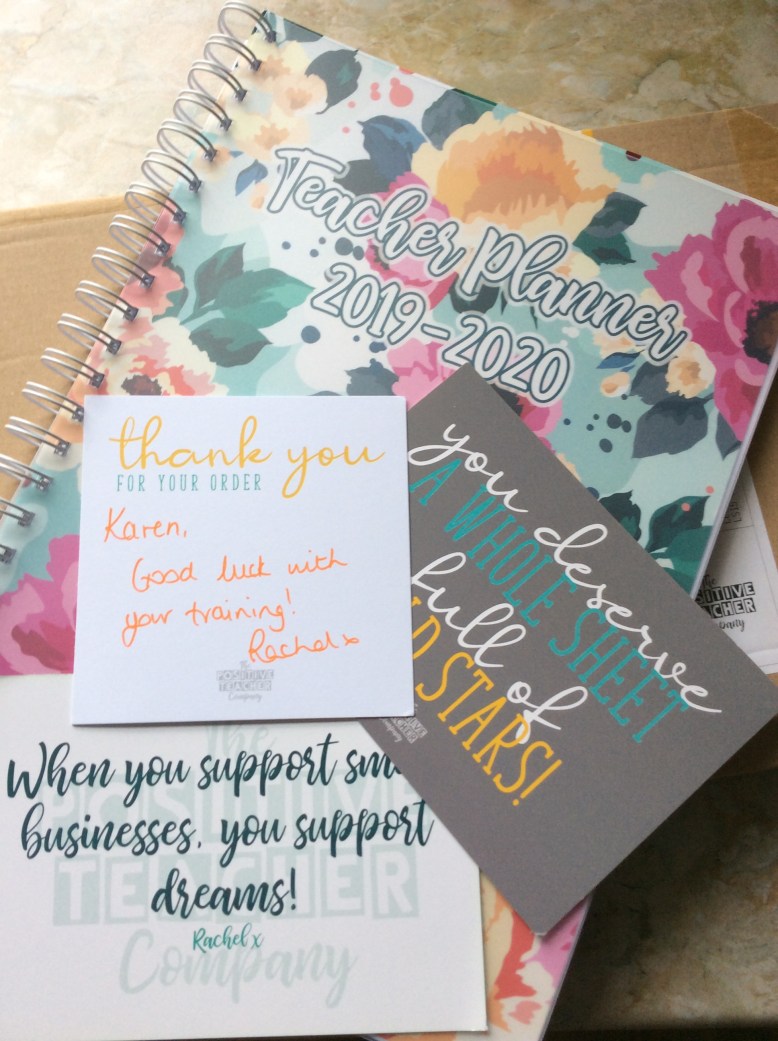 Teacher Planner
2019-2020
thank you
FOR YOUR ORDER
Karen,
Good luck with
your training!
Rachel x
The
POSITIVE
TEACHER
Company
you deserve
A WHOLE SHEET
full of
STARS!
When you support
businesses, you support
dreams!
Rachel x
The
POSITIVE
TEACHER
Company
The
POSITIVE
TEACHER
Company